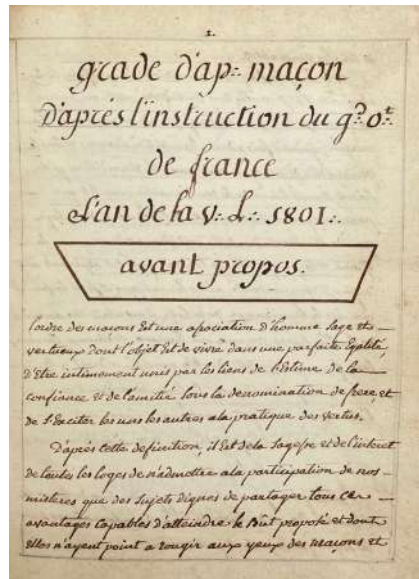 1.
grade d'ap∴ maçon
D'après l'instruction du g∴ o∴
de france
L'an de la V∴ L∴ 1801∴
avant propos.
l'ordre des maçons Est une association D'homme Sage et
vertueux dont l'objet Est de vivre dans une parfaite Egalité,
D'Etre intimement unis par les liens de l'Estime de la
confiance et de l'amitié sous la denomination de frere, et
de S'Exciter les uns les autres a la pratique des vertus.
D'après Cette definition, il Est de la Sagesse et de l'interet
de toutes les loges de n'admettre a la participation de nos
misteres que des Sujets dignes de partager tous ces
avantages capables d'atteindre le But proposé et dont
Elles n'ayent point a rougir aux yeux des maçons et